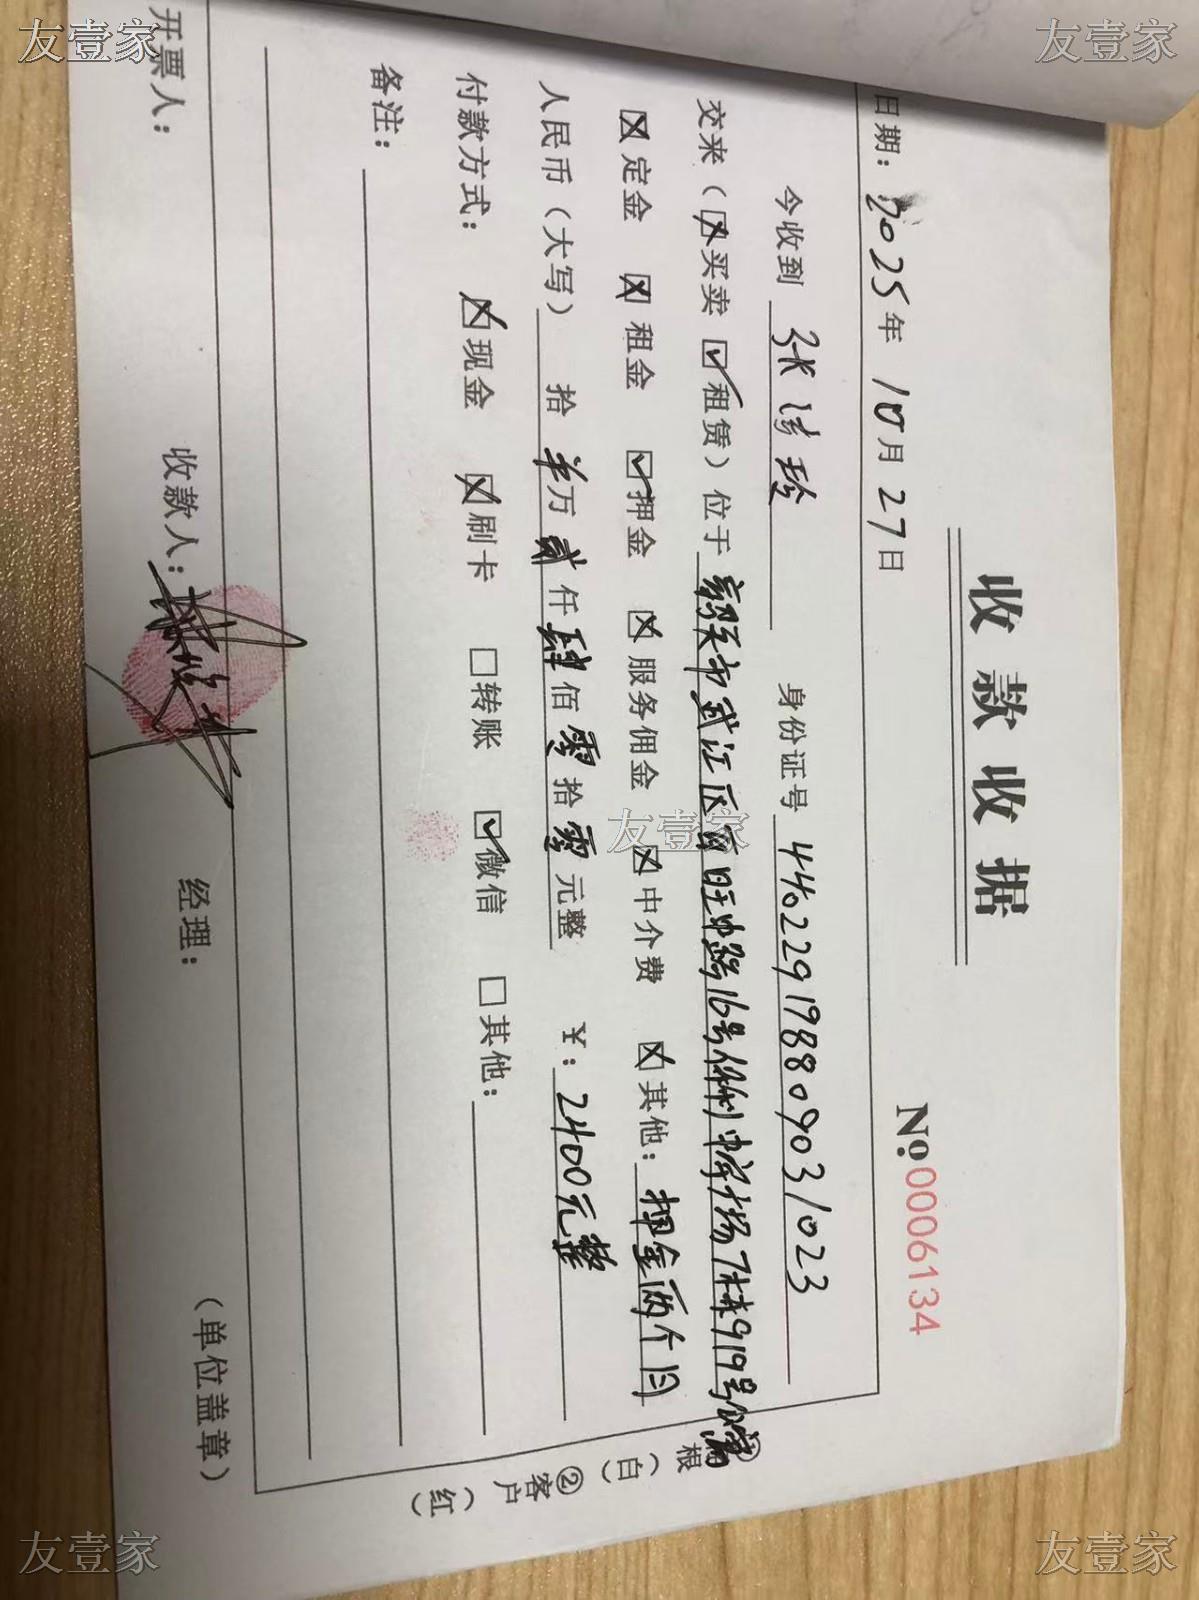 友壹家
友壹家
收款收据
No.0006134
日期：2025年10月27日
今收到 张 玲 身份证号 440229198809031023
交来（☒买卖 ☑租赁）位于 韶关市武江区百旺中路16号保利中宇广场7栋919号公寓
☒定金 ☒租金 ☑押金 ☒服务佣金 ☒中介费 ☒其他：押金两个月
人民币（大写） 拾 羊万贰仟肆佰零拾零元整 ¥：2400元整
付款方式： ☒现金 ☒刷卡 □转账 ☑微信 □其他：
备注：
开票人： 收款人： 经理： （单位盖章）
根（白） ②客户（红）
友壹家
友壹家
友壹家